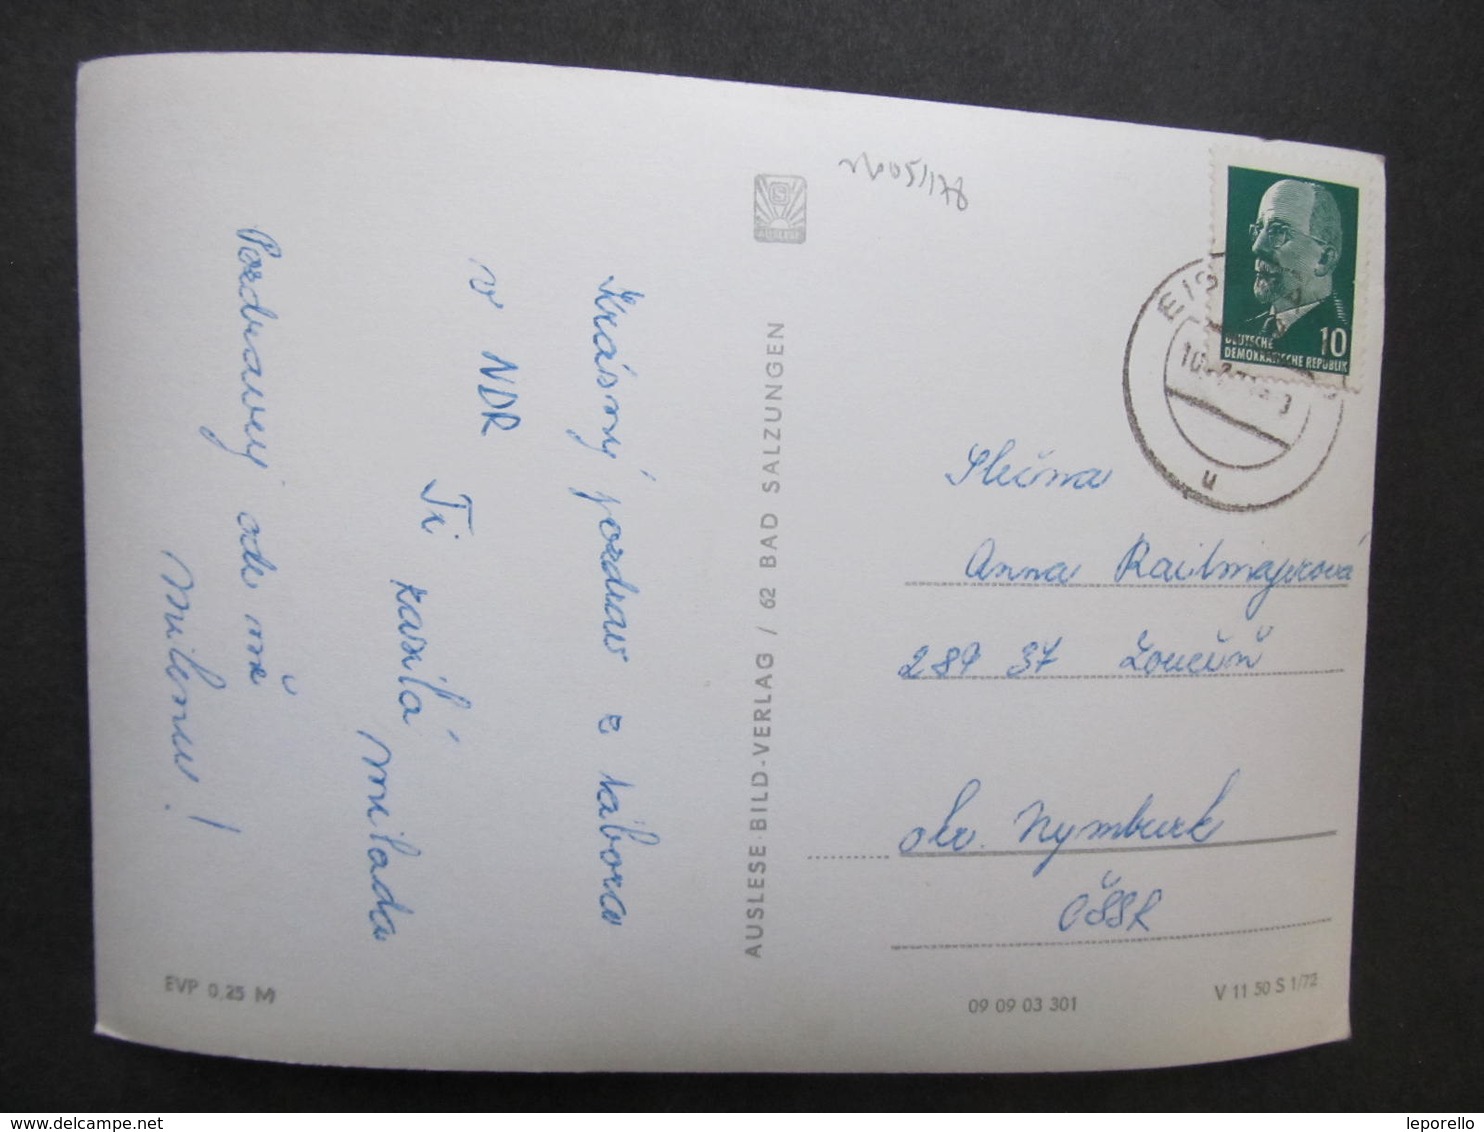 Krásný pozdrav z tábora
v NDR
Ti zasílá
Milada
Pozdravuj ode mě
Milenu!
EVP 0,25 M
AUSLESE
AUSLESE-BILD-VERLAG / 62 BAD SALZUNGEN
10
DEUTSCHE
DEMOKRATISCHE REPUBLIK
u
Slečna
Anna
289 37 Loučeň
okr. Nymburk
ČSSR
09 09 03 301
V 11 50 S 1/72
leporello